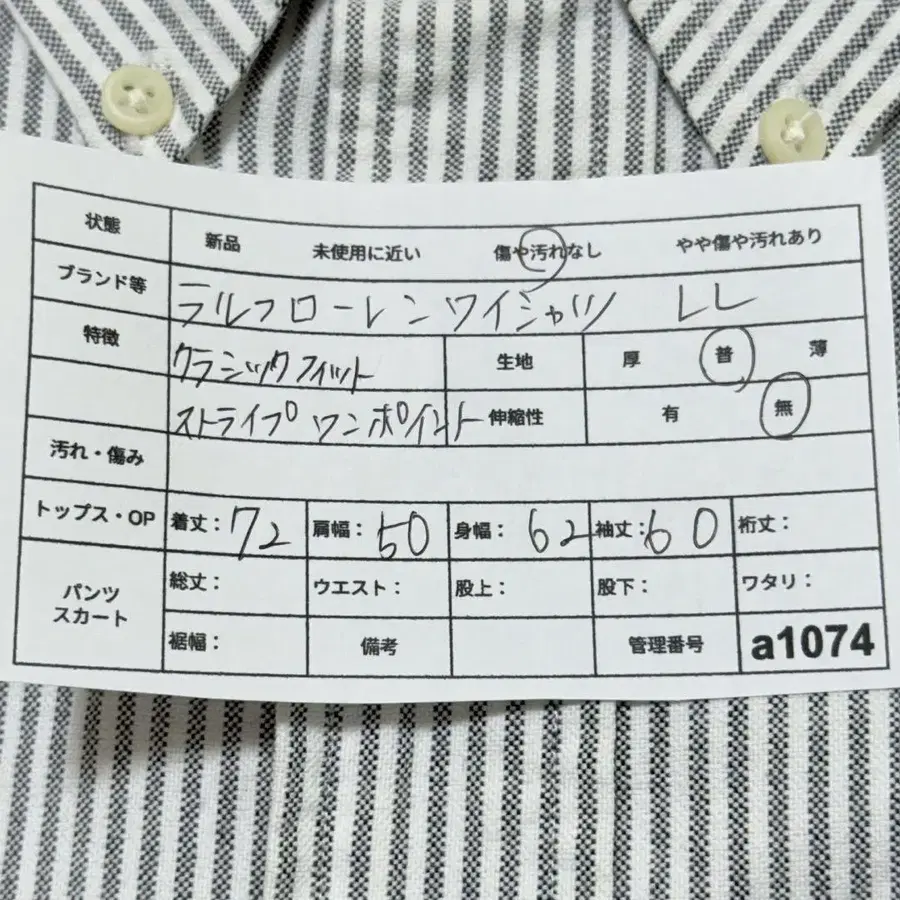 状態 新品 未使用に近い 傷や汚れなし やや傷や汚れあり
ブランド等 ラルフローレン ワイシャツ LL
特徴 クラシックフィット 生地 厚 普 薄
ストライプ ワンポイント 伸縮性 有 無
汚れ・傷み
トップス・OP 着丈：72 肩幅：50 身幅：62 袖丈：60 裄丈：
パンツ スカート 総丈： ウエスト： 股上： 股下： ワタリ：
裾幅： 備考 管理番号 a1074